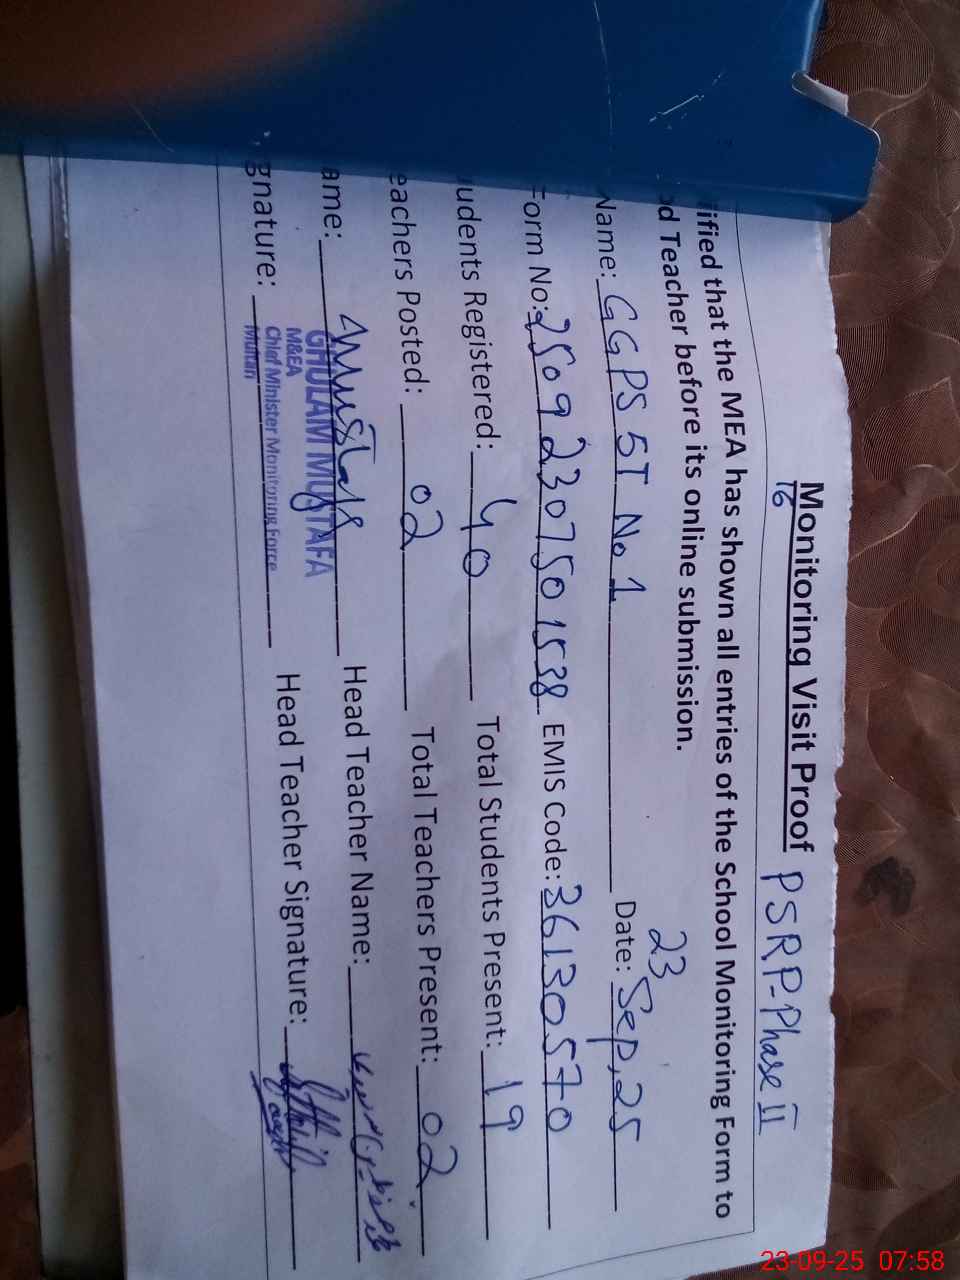 Monitoring Visit Proof PSRP-Phase II
16
ified that the MEA has shown all entries of the School Monitoring Form to
d Teacher before its online submission.
Name: GGPS 5T No 1 Date: 23 Sep, 25
Form No: 25092307501538 EMIS Code: 36130570
udents Registered: 40 Total Students Present: 19
eachers Posted: 02 Total Teachers Present: 02
ame: Head Teacher Name:
GHULAM MUSTAFA
M&EA
gnature: Head Teacher Signature:
Chief Minister Monitoring Force
Multan
23-09-25 07:58